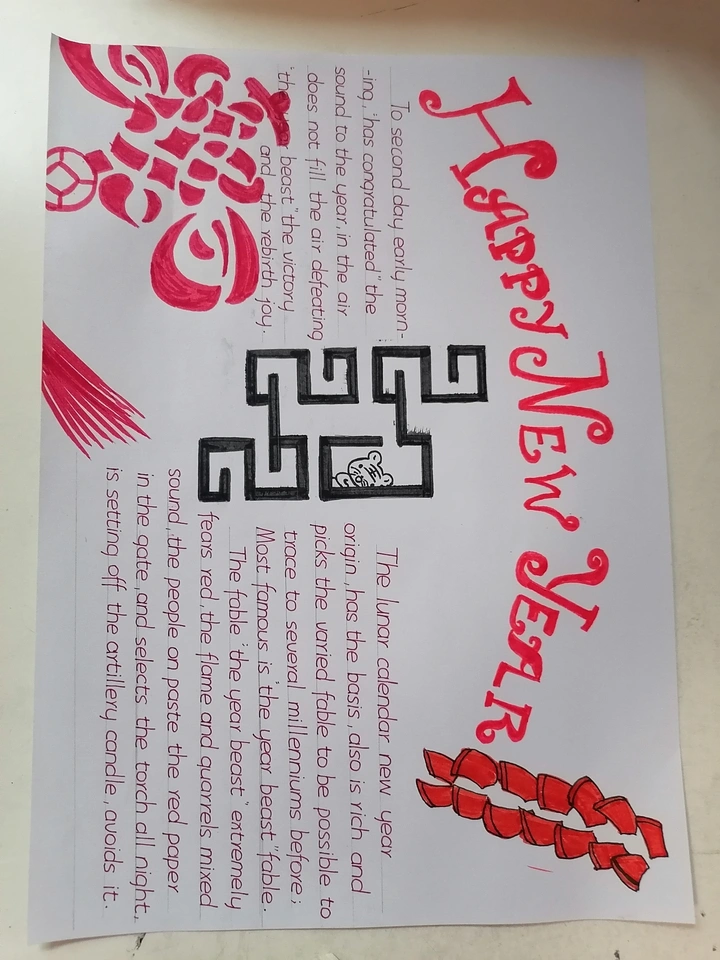 HAPPY NEW YEAR
To second day early morn-
-ing, 'has congratulated" the
sound to the year, in the air
does not fill the air defeating
'the year beast" the victory
and the rebirth joy.
20
22
The lunar calendar new year
origin, has the basis, also is rich and
picks the varied fable to be possible to
trace to several millenniums before;
Most famous is 'the year beast "fable.
The fable 'the year beast" extremely
fears red, the flame and quarrels mixed
sound, the people on paste the red paper
in the gate, and selects the torch all night,
is setting off the artillery candle, avoids it.